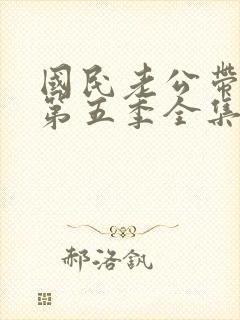 國民老公帶
第五季全集
郝洛釩